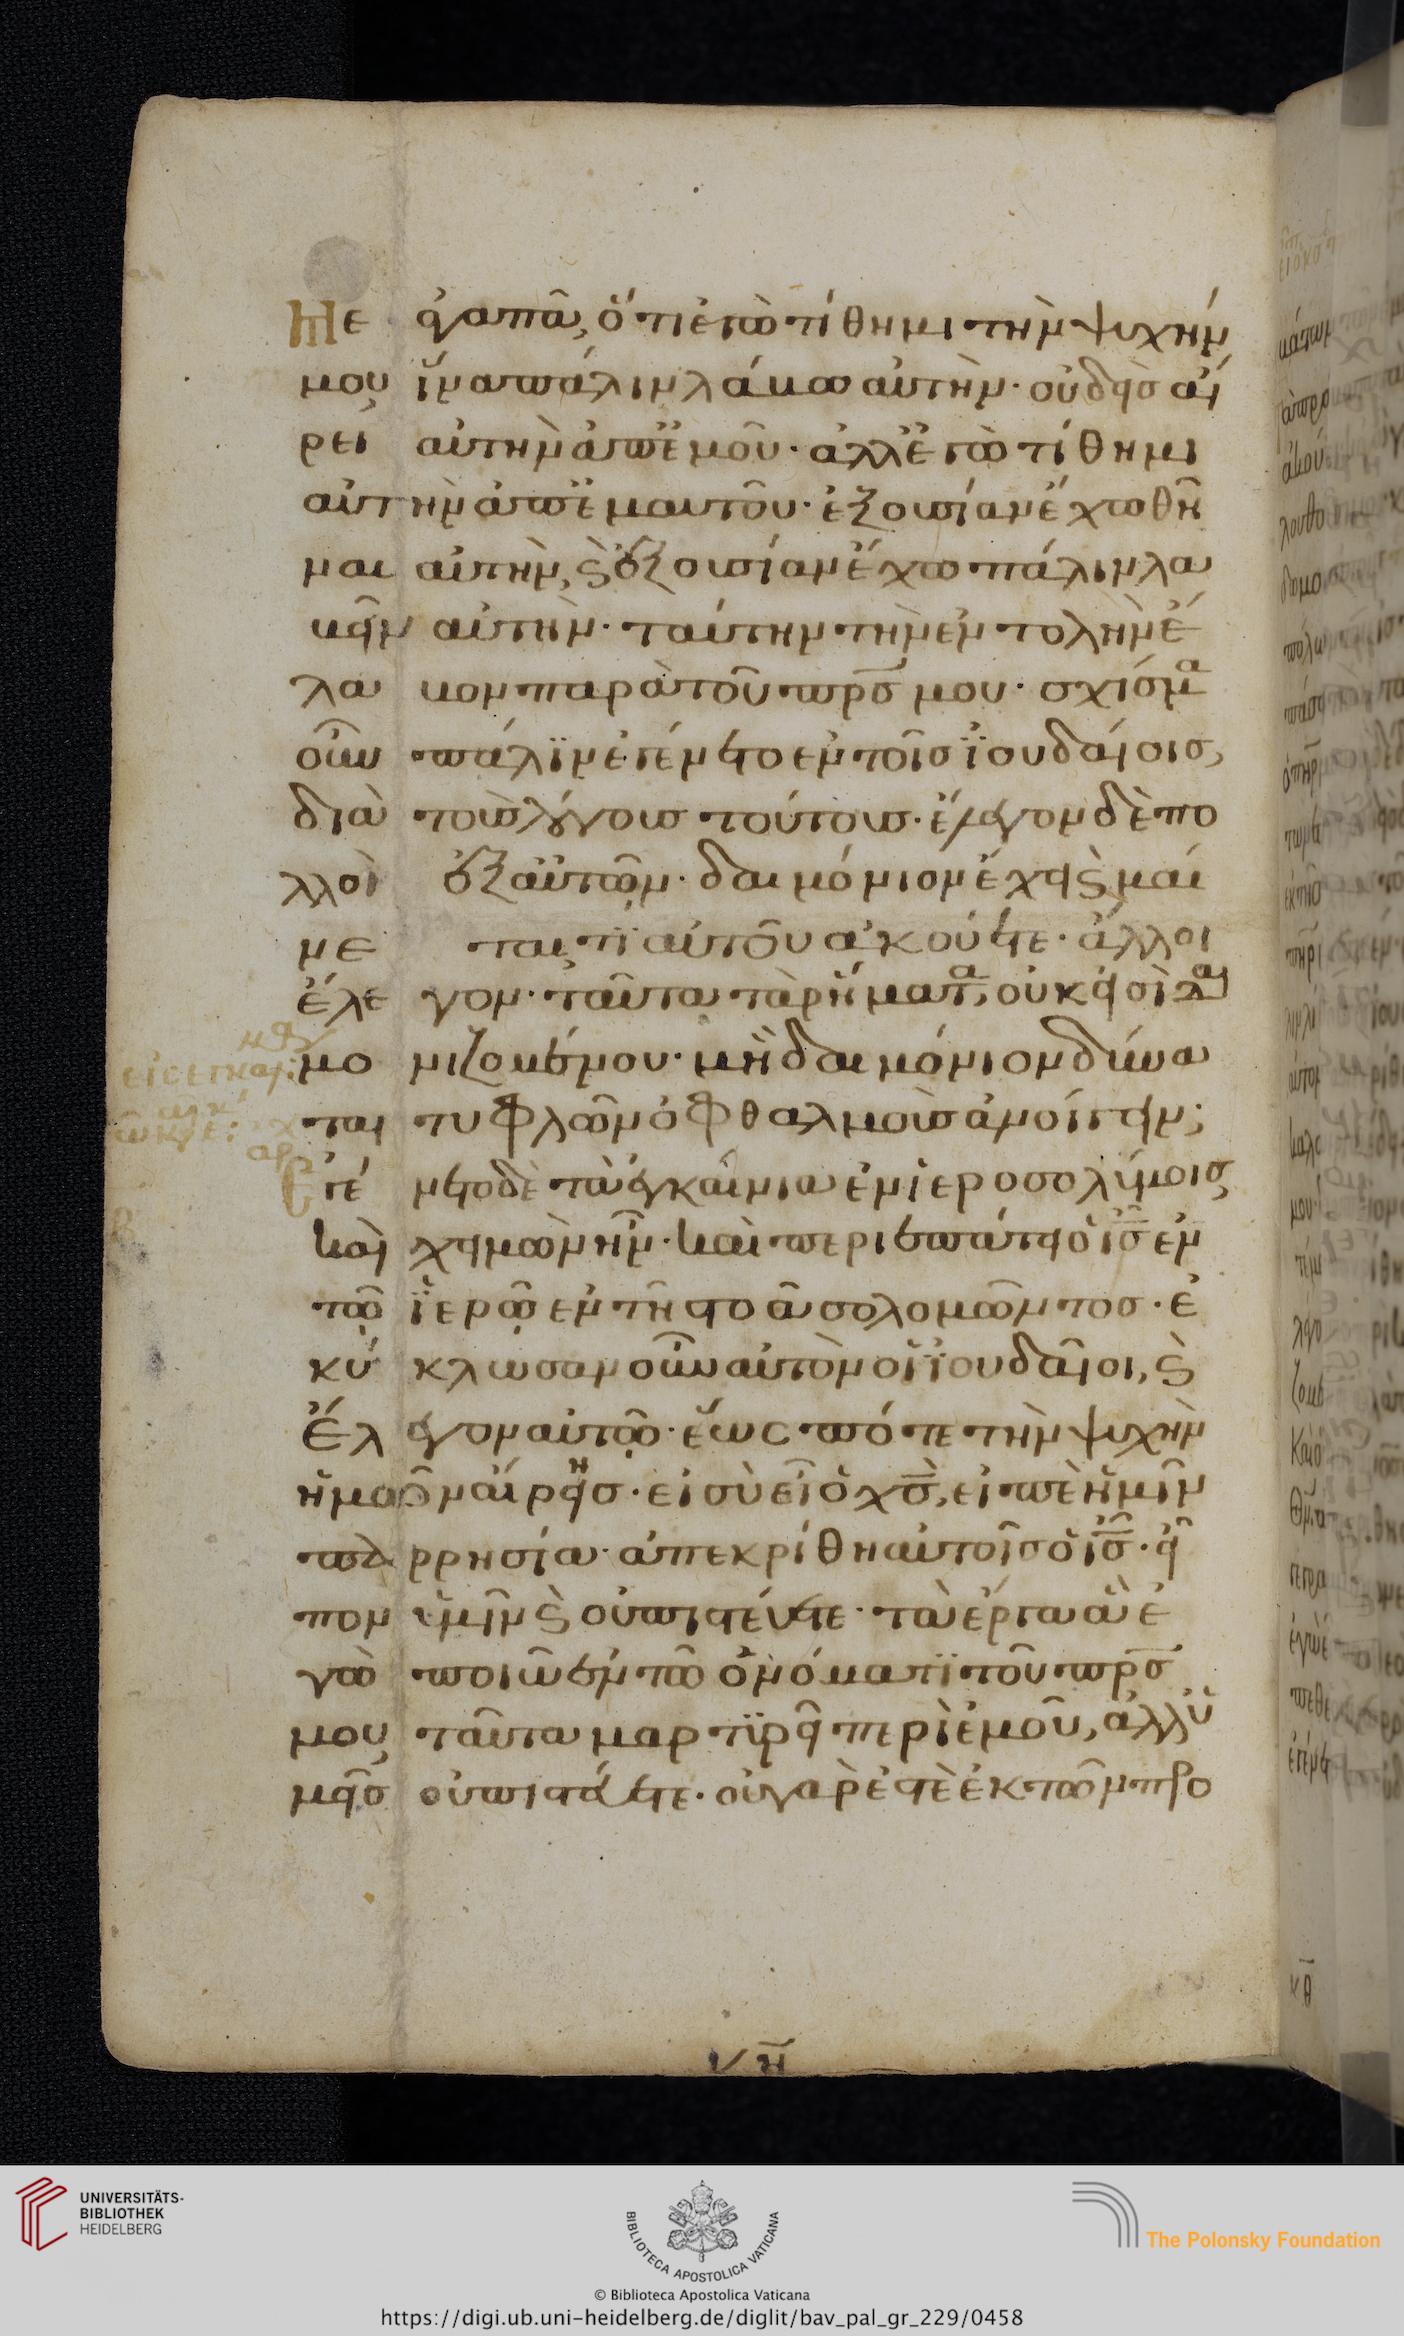 με ἀγαπᾶ, ὅτι ἐγὼ τίθημι τὴν ψυχήν
μου ἵνα πάλιν λάβω αὐτὴν· οὐδεὶς αἴ
ρει αὐτὴν ἀπ' ἐμοῦ· ἀλλ' ἐγὼ τίθημι
αὐτὴν ἀπ' ἐμαυτοῦ· ἐξουσίαν ἔχω θεῖ
ναι αὐτὴν, ϗ ἐξουσίαν ἔχω πάλιν λα
βεῖν αὐτήν· ταύτην τὴν ἐντολὴν ἔ
λα βον παρὰ τοῦ πρσ μου· σχίσμα
οὖν πάλϊν ἐγένετο ἐν τοῖς ϊουδαίοις,
διὰ τοὺς λόγους τούτους· ἔλεγον δὲ πο
λλοὶ ἐξ αὐτῶν· δαιμόνιον ἔχει ϗ μαί
νε ται, τϊ αὐτοῦ ἀκούετε· ἄλλοι
ἔλε γον· ταῦτα τὰ ρήματα, οὐκ εἰσὶ δαι
μο νιζομένου· μὴ δαιμόνιον δύνα
ται τυφλῶν ὀφθαλμοὺς ἀνοίγειν;
Ἐγέ νετο δὲ τὰ ἐγκαίνια ἐν ἱεροσολύμοις
καὶ χειμὼν ἦν· καὶ περιεπάτει ὁ ισ ἐν
τῶ ϊερῶ ἐν τῆ στοᾶ σολομῶντος· ἐ
κύ κλωσαν οὖν αὐτὸν οἱ ϊουδαῖοι, ϗ
ἔλ εγον αὐτῶ· ἕως πότε τὴν ψυχὴν
ἡμῶν αἴρεις· εἰ σὺ εἶ ὁ χσ, εἰπὲ ἡμῖν
πα ρρησία· ἀπεκρίθη αὐτοῖς ὁ ισ· εἶ
πον ὑμῖν ϗ οὐ πιστεύετε· τὰ ἔργα ἃ ἐ
γὼ ποιῶ ἐν τῶ ὀνόματϊ τοῦ πρσ
μου ταῦτα μαρτϋρεῖ περὶ ἐμοῦ, ἀλλ' ὑ
μεῖς οὐ πιστεύετε· οὐ γάρ ἐστὲ ἐκ τῶν προ
UNIVERSITÄTS-
BIBLIOTHEK
HEIDELBERG
BIBLIOTECA APOSTOLICA VATICANA
The Polonsky Foundation
© Biblioteca Apostolica Vaticana
https://digi.ub.uni-heidelberg.de/diglit/bav_pal_gr_229/0458